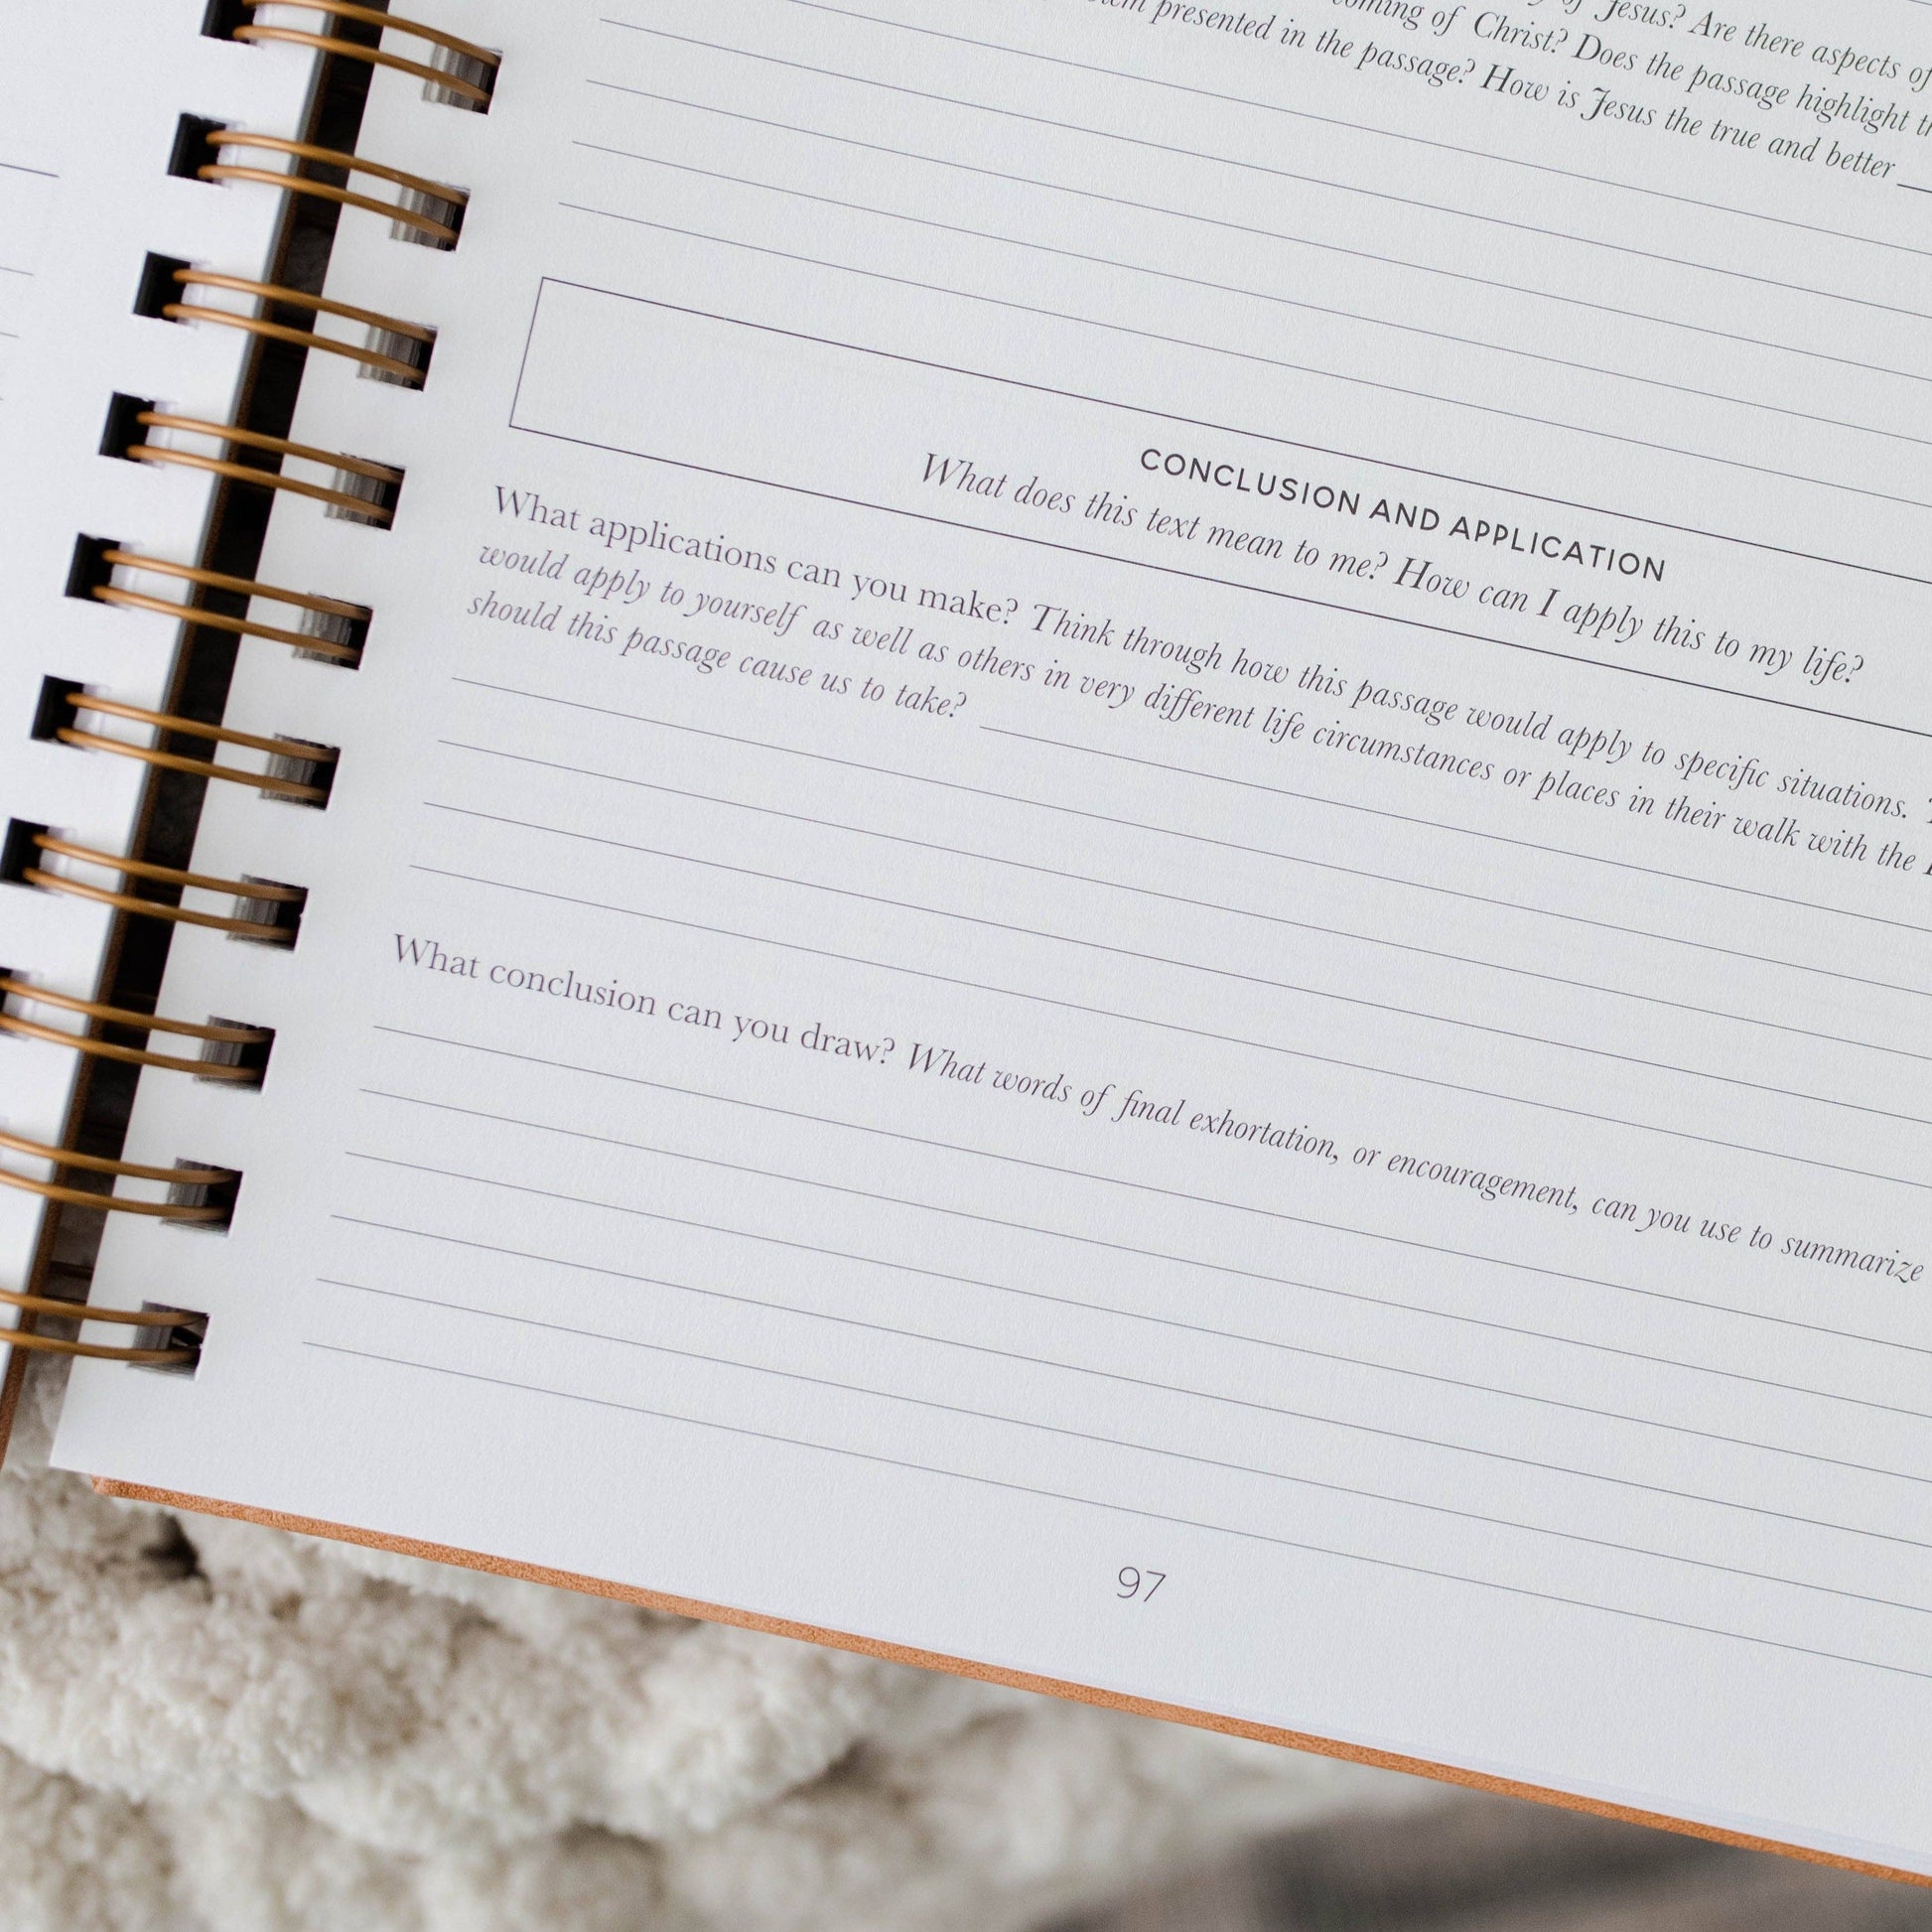 of Jesus? Are there aspects of
of Christ? Does the passage highlight
presented in the passage? How is Jesus the true and better
CONCLUSION AND APPLICATION
What does this text mean to me? How can I apply this to my life?
What applications can you make? Think through how this passage would apply to specific situations.
would apply to yourself as well as others in very different life circumstances or places in their walk with the
should this passage cause us to take?
What conclusion can you draw? What words of final exhortation, or encouragement, can you use to summarize
97